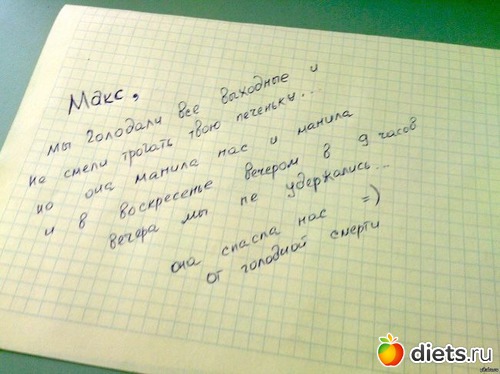 Макс,
мы голодали все выходные и
не смели трогать твою печеньку...
но она манила нас и манила
и в воскресенье вечером в 9 часов
вечера мы не удержались...
она спасла нас =)
от голодной смерти
diets.ru